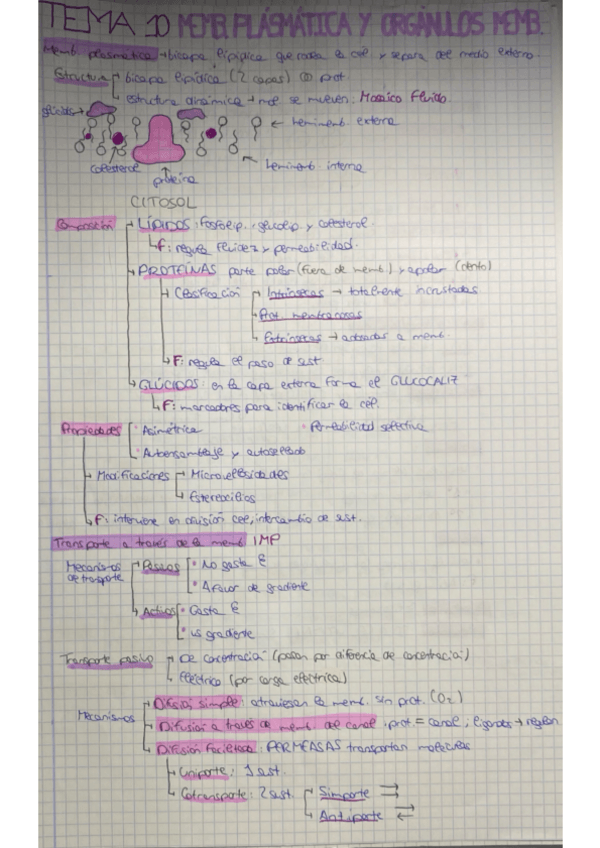 TEMA 10 MEMB. PLÁSMÁTICA Y ORGÁNULOS MEMB.
Memb. plasmática → bicapa lipídica que rodea la cel. y separa del medio externo.
Structura bicapa lipídica (2 capas) con prot.
estructura dinámica → mol se mueven: Mosaico Fluido
glúcidos
← hemimemb externa
colesterol
proteína
← hemimemb interna
CITOSOL
Composición → LÍPIDOS: fosfolip. glucolip y colesterol.
F: regula fluidez y permeabilidad.
→ PROTEÍNAS parte polar (fuera de memb.) y apolar (dentro)
→ Clasificación → Intrínsecas → totalmente incrustadas
→ Prot. membranosas
→ Extrínsecas → adosadas a memb.
→ F: regula el paso de sust
→ GLÚCIDOS: en la capa externa forma el GLUCOCALIZ
F: marcadores para identificar la cel.
Propiedades • Asimétrica • Permeabilidad selectiva
• Autoensamblaje y autosellado
→ Modificaciones → Microvellosidades
→ Estereocilios
F: interviene en división cel, intercambio de sust.
Transporte a través de la memb IMP
Mecanismos de transporte → Pasivos • No gasta E
• A favor de gradiente
→ Activos • Gasta E
• vs gradiente
Transporte pasivo → De concentración (pasan por diferencia de concentración)
→ Eléctrico (por carga eléctrica)
Mecanismos → Difusión simple: atraviesan la memb. sin prot. (O₂)
→ Difusión a través de memb. del canal: prot = canal; ligandos → regulan
→ Difusión facilitada: PERMEASAS transportan moléculas
→ Uniporte: 1 sust.
→ Cotransporte: 2 sust. → Simporte ⇉
→ Antiporte ⇄